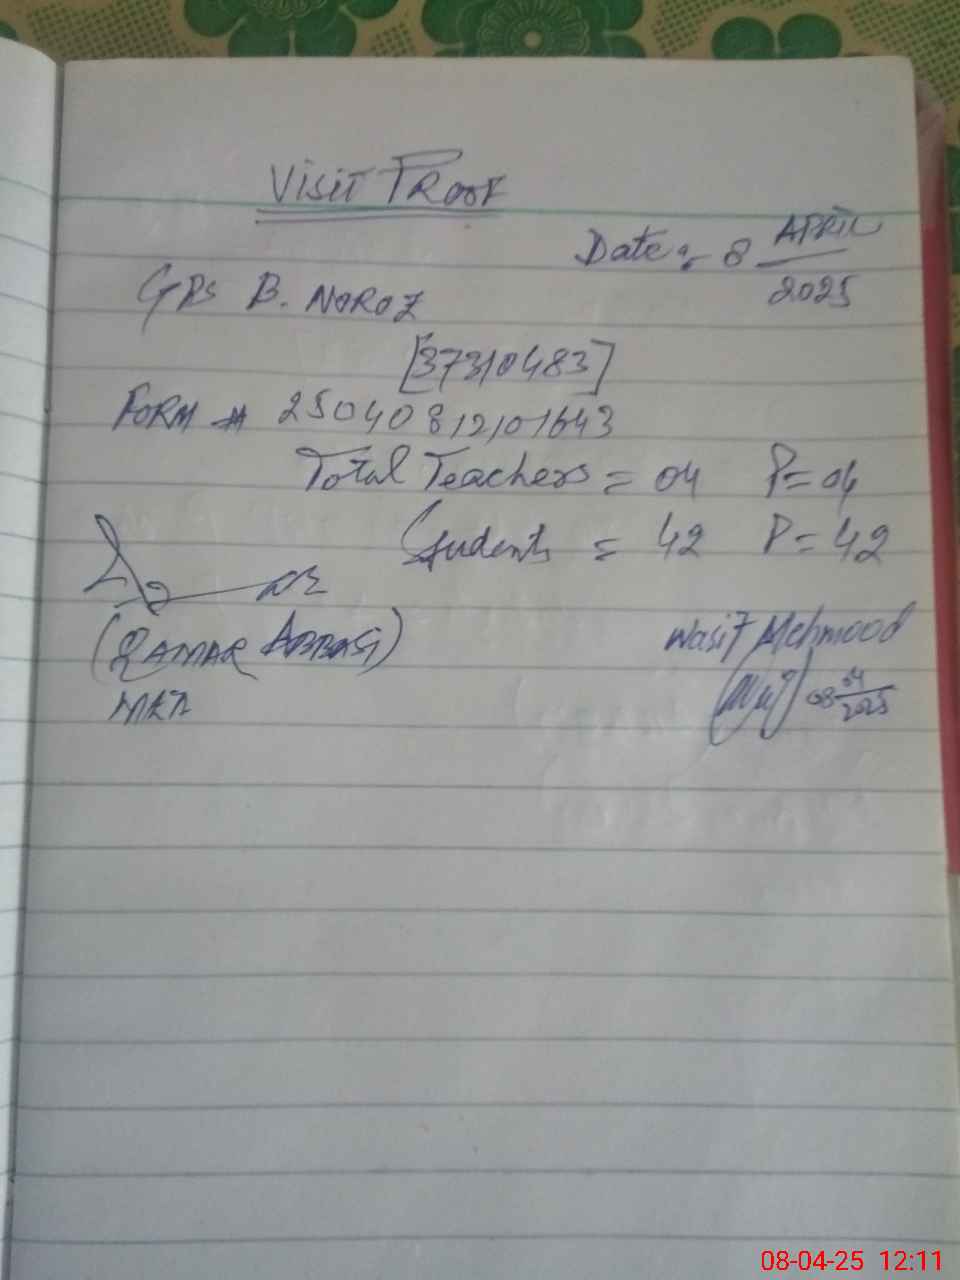 Visit PROOF
Date:- 8 APRIL 2025
GPS B. NOROZ
[37310483]
FORM # 25040812101643
Total Teachers = 04 P=04
Students = 42 P=42
(QAMAR ABBASI)
Wasif Mehmood
08 04 2025
08-04-25 12:11